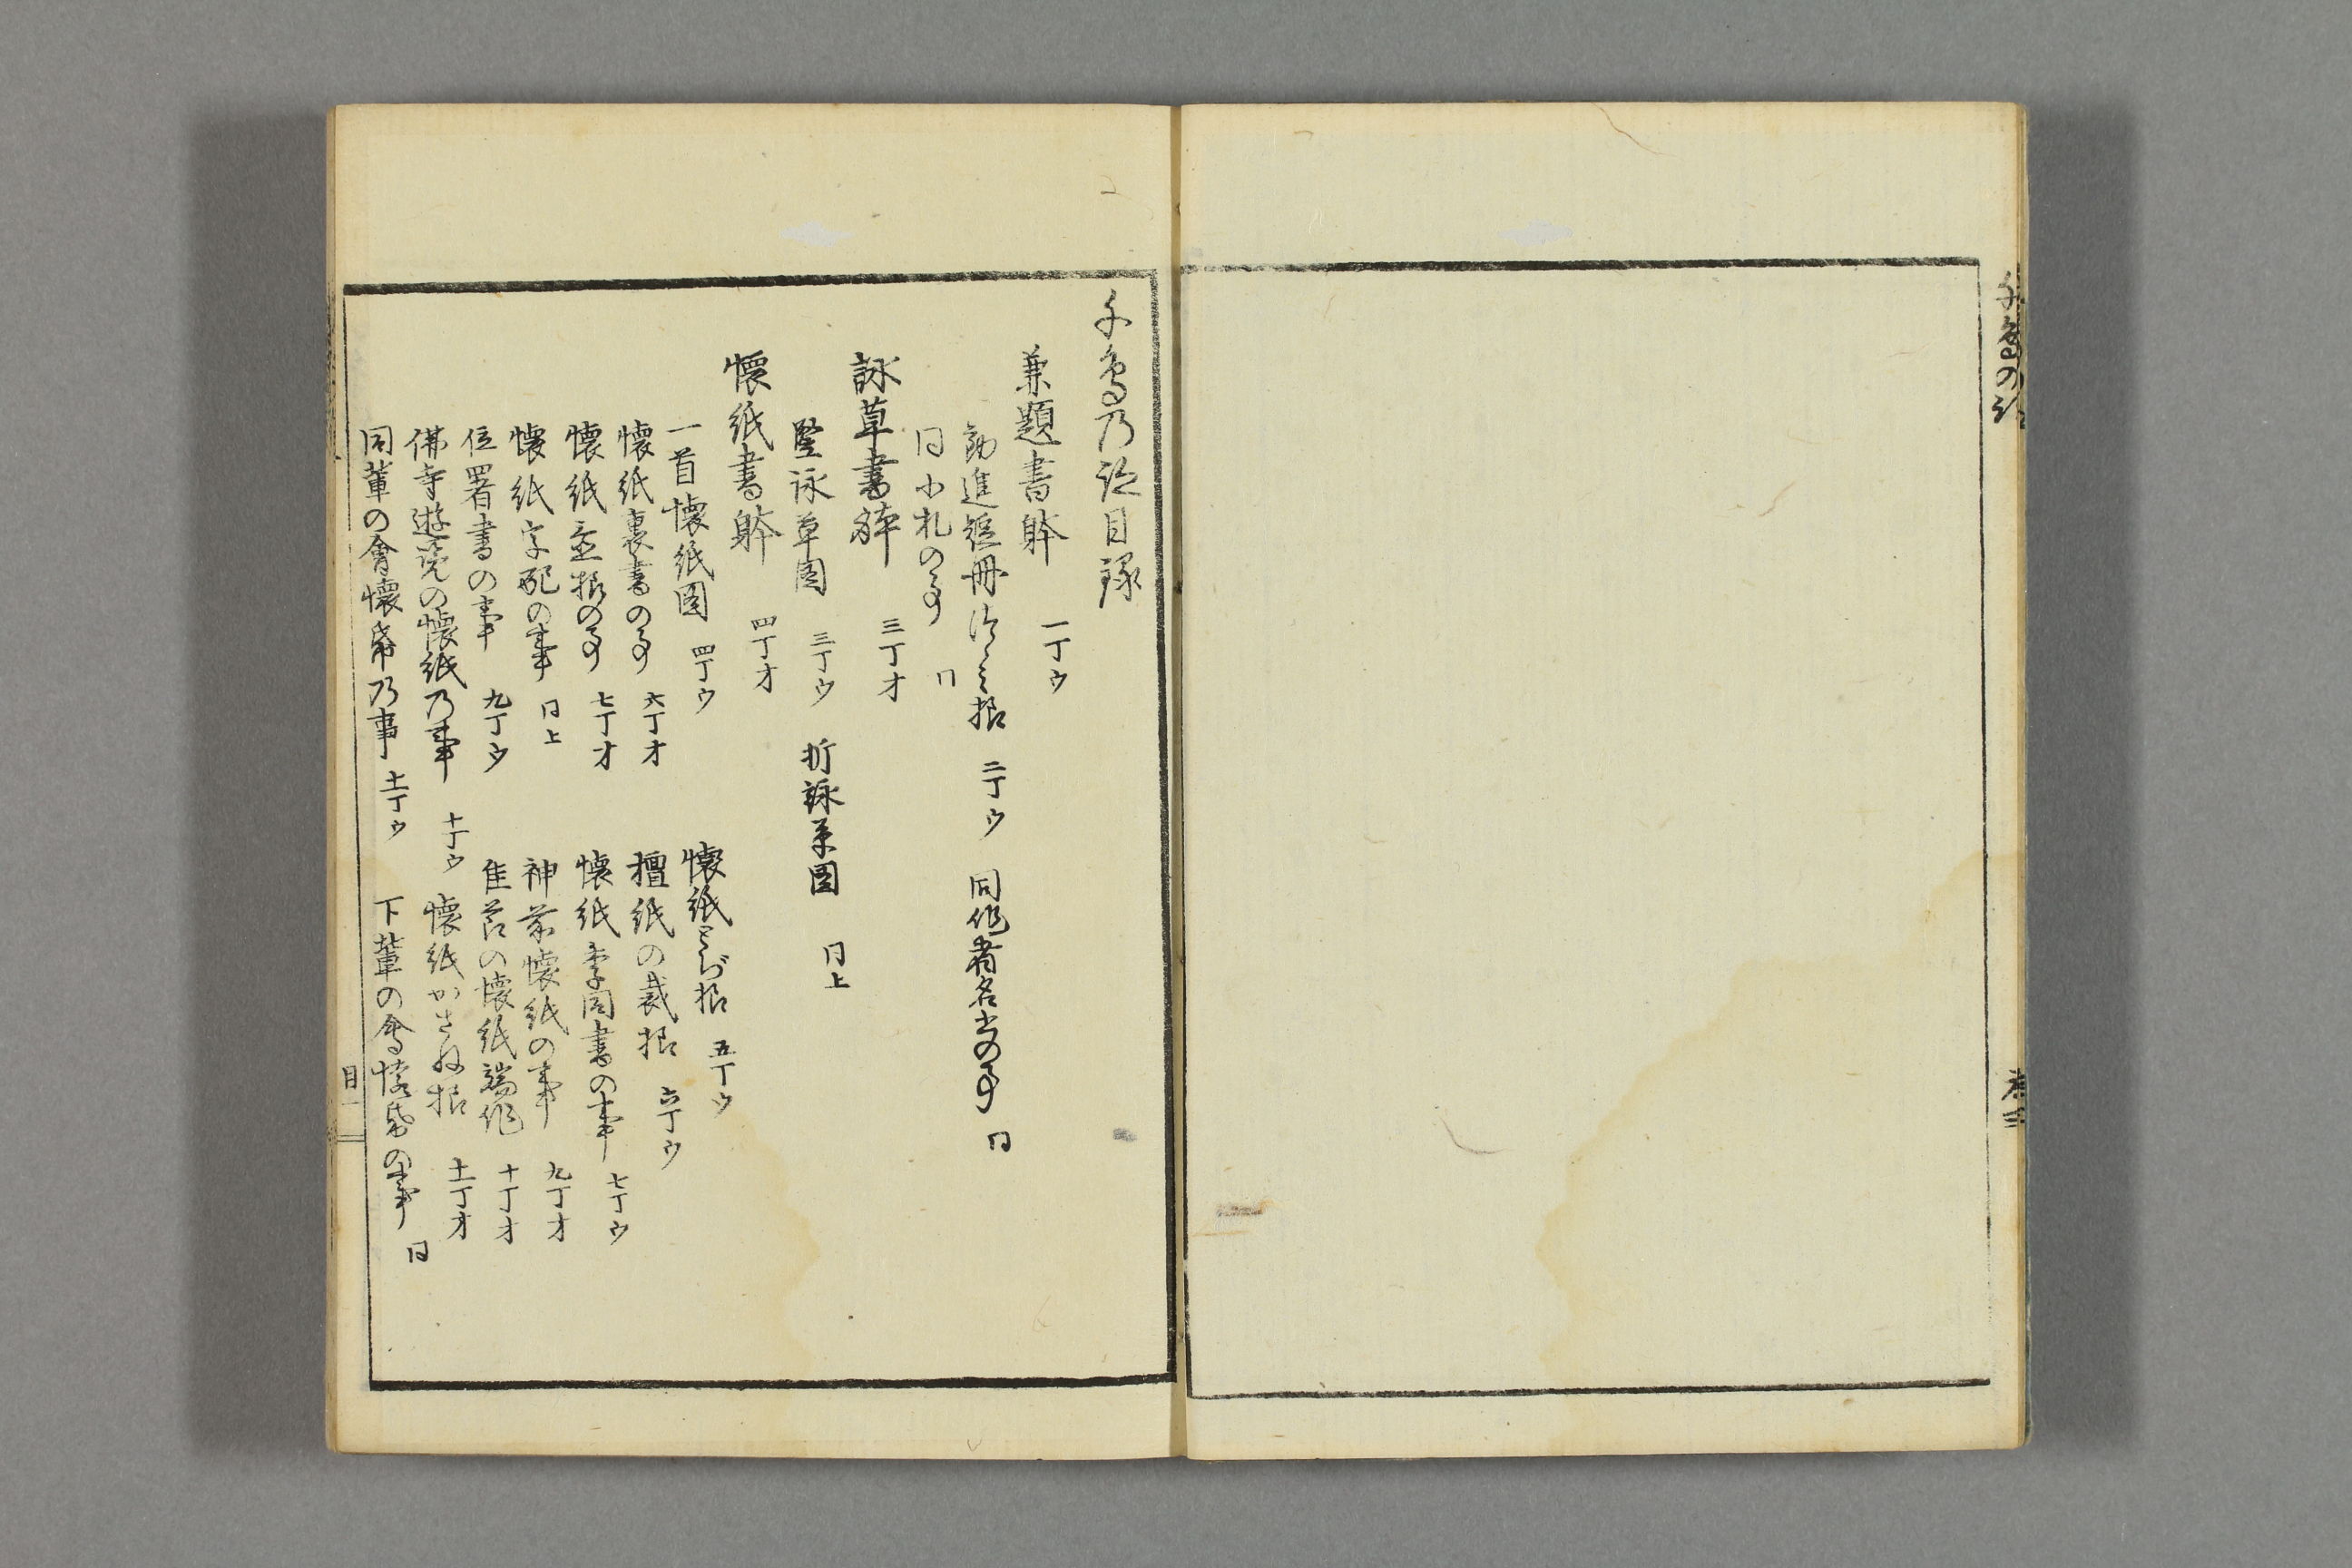 千鳥の跡
巻三
千鳥乃跡目録
兼題書躰 一丁ウ
勧進短冊法々様 二丁ウ 同作者名書の事 同
同小札の事 同
詠草書躰 三丁オ
竪詠草図 三丁ウ 折詠草図 同上
懐紙書躰 四丁オ
一首懐紙図 四丁ウ 懐紙とぢ様 五丁ウ
懐紙裏書の事 六丁オ 檀紙の裁様 六丁ウ
懐紙重様の事 七丁オ 懐紙季同書の事 七丁ウ
懐紙字配の事 同上 神前懐紙の事 九丁オ
位署書の事 九丁ウ 佳節の懐紙端作 十丁オ
佛寺遊覧の懐紙乃事 十丁ウ 懐紙かさね様 十一丁オ
同輩の會懐帋乃事 十一丁ウ 下輩の會懐帋の事 同
目一